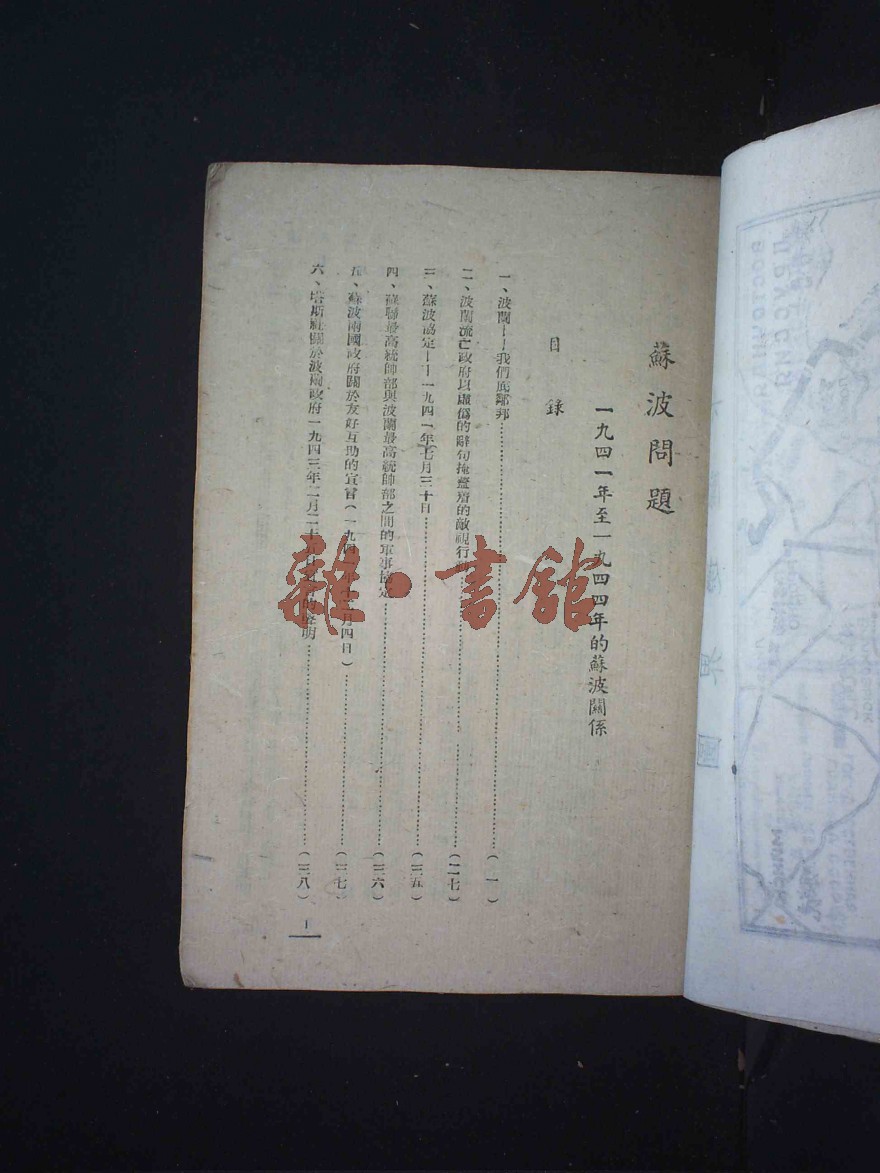 蘇波問題
一九四一年至一九四四年的蘇波關係
目錄
一、波闌——我們底鄰邦……(一)
二、波闌流亡政府以虛僞的辭句掩蓋着的敵視行……(二七)
三、蘇波協定——一九四一年七月三十日……(三五)
四、蘇聯最高統帥部與波闌最高統帥部之間的軍事協定……(三六)
五、蘇波兩國政府關於友好互助的宣言(一九四 月四日)……(三七)
六、塔斯社關於波闌政府一九四三年二月二十 的聲明……(三八)
1
雜·書館